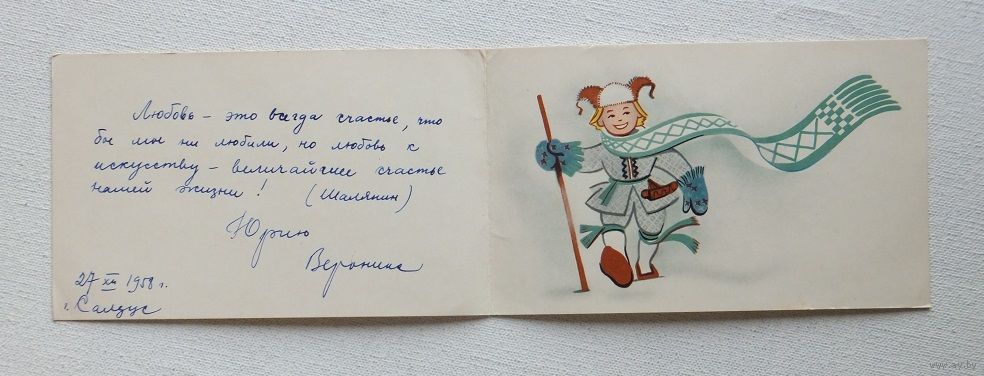 Любовь – это всегда счастье, что
бы мы ни любили, но любовь к
искусству – величайшее счастье
нашей жизни! (Шаляпин)
Юрию
Вероника
27 XII 1958 г.
г. Салдус
www.ay.by